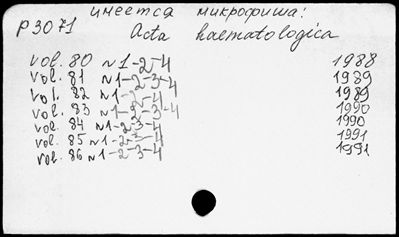 имеется микрофиша:
P3071 Acta haematologica
vol. 80 N1-2-4 1988
vol. 81 N1-2-3-4 1989
vol. 82 N1-2-4 1989
vol. 83 N1-2-3-4 1990
vol. 84 N1-2-3-4 1990
vol. 85 N1-2-4 1991
vol. 86 N1-2-3-4 1991